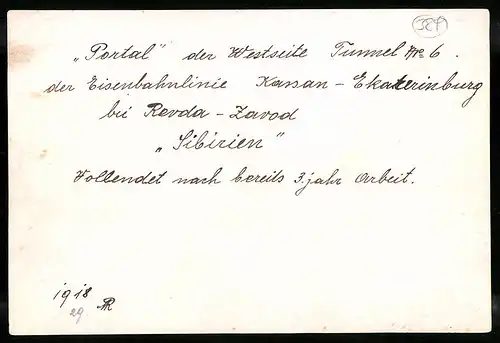 384
„Portal" der Westseite Tunnel No 6.
der Eisenbahnlinie Kassan - Ekaterinburg
bei Revda - Zavod
„Sibirien"
Vollendet nach bereits 3. jahr Arbeit.
1918
29